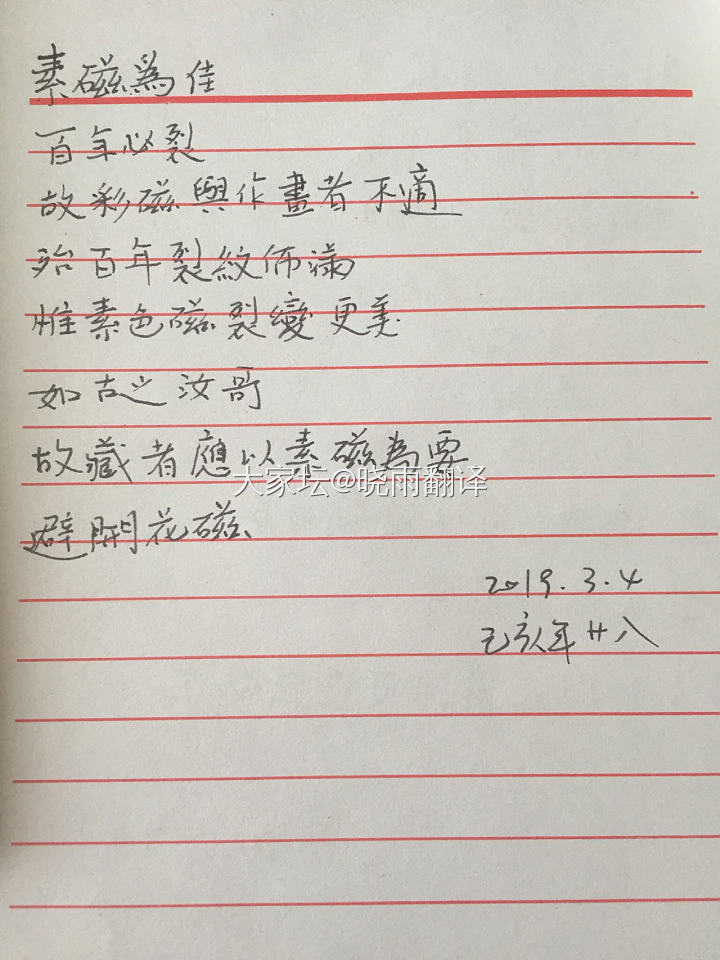 素磁為佳
百年必裂
故彩磁與作畫者不適
殆百年裂紋佈滿
惟素色磁裂變更美
如古之汝哥
故藏者應以素磁為要
大家坛@晓雨翻译
避開花磁
2019.3.4
己亥年廿八